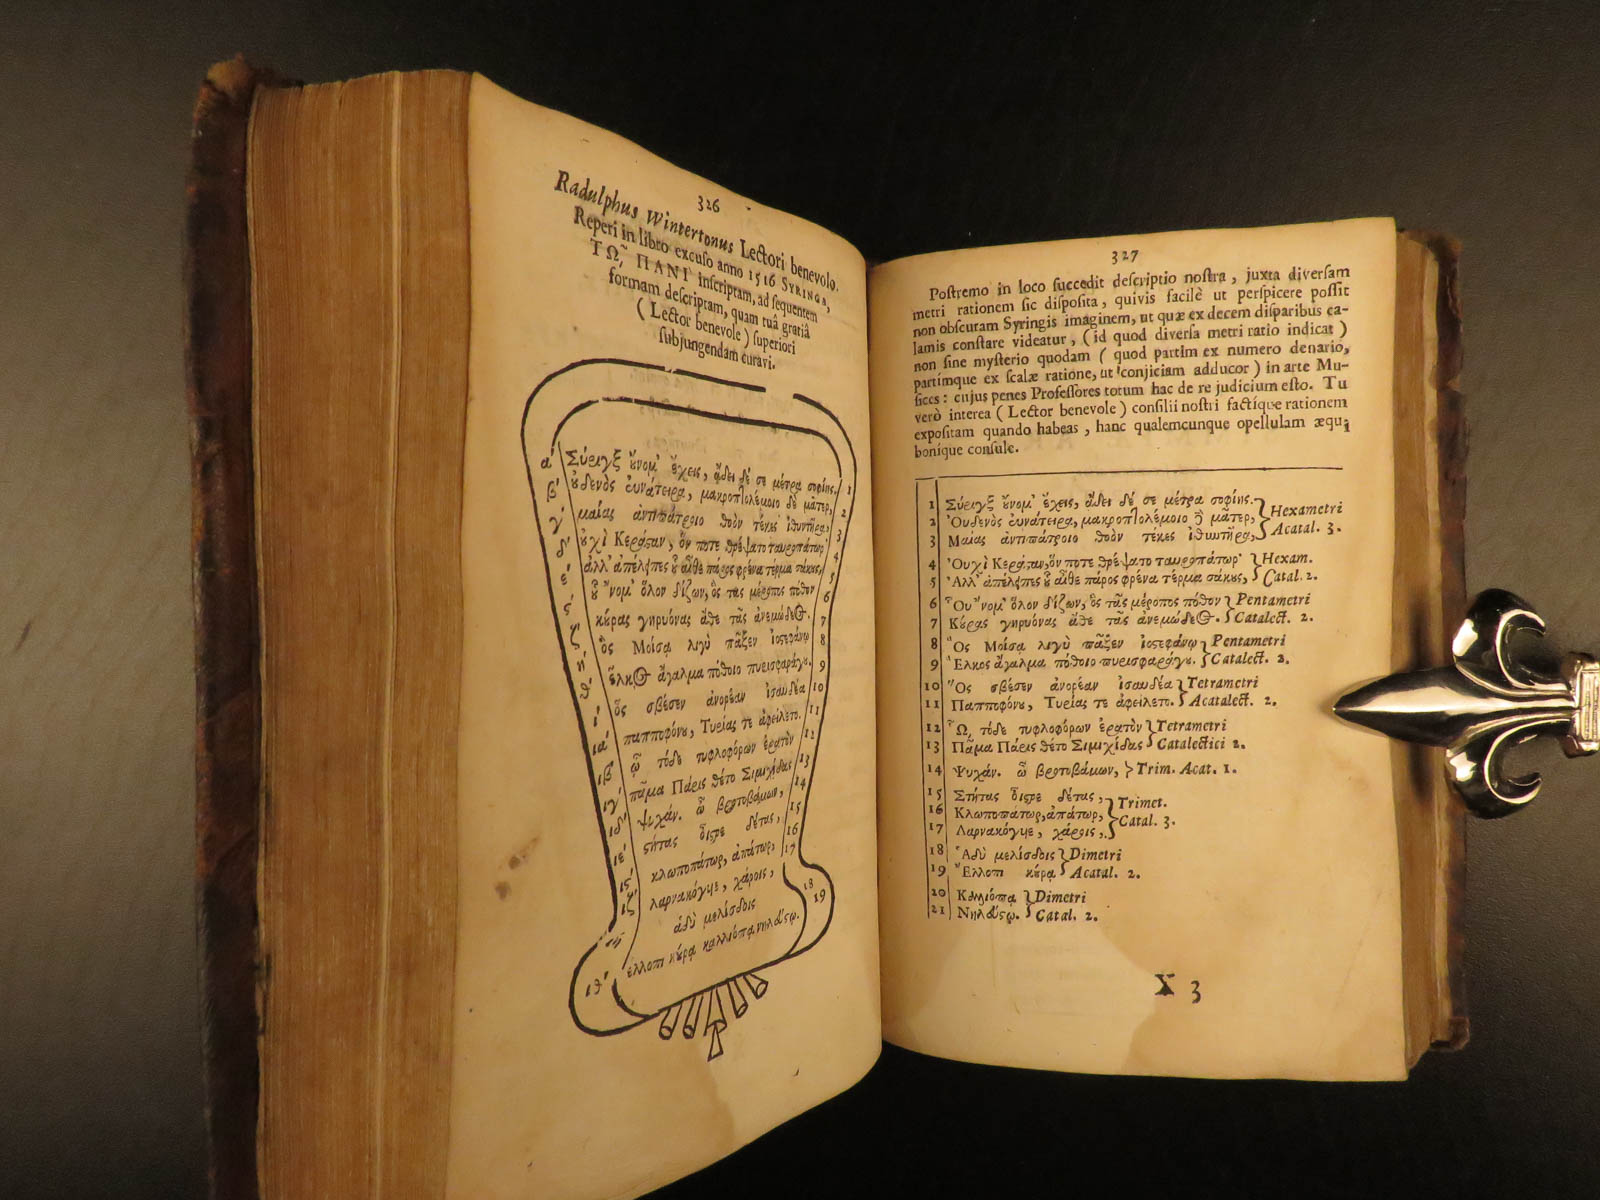 326
Radulphus Wintertonus Lectori benevolo.
Reperi in libro excuso anno 1516 SYRINGA,
Τῼ͂ ΠΑΝΙ inscriptam, ad sequentem
formam descriptam, quam tuâ gratiâ
( Lector benevole ) superiori
subjungendam curavi.
α΄ Σύριγξ ὄνομ' ἔχεις, ᾄδει δέ σε μέτρα σοφίης. 1
β΄ οὐδενὸς εὐνάτειρα, μακροπτολέμοιο δὲ μᾶτερ, 2
γ΄ μαίας ἀντιπάτροιο θοὸν τέκες ἰθυντῆρα, 3
δ΄ οὐχὶ Κεράσταν, ὅν ποτε θρέψατο ταυροπάτωρ 4
ε΄ ἀλλ' 5
6
κέρας γηρυόνας ἅτε τᾶς ἀνεμώδεος. 7
ζ΄ ὃς Μοίσᾳ λιγὺ πᾶξεν ἰοστεφάνῳ 8
η΄ ἕλκος ἄγαλμα πόθοιο πυρισφαράγου. 9
θ΄ ὃς σβέσεν ἀνορέαν ἰσαυδέα 10
ι΄ παπποφόνου, Τυρίας τε ἀφείλετο. 11
ια΄ ᾧ τόδε τυφλοφόρων ἐρατὸν 12
ιβ΄ πᾶμα Πάρις θέτο Σιμιχίδας 13
ιγ΄ ψυχάν. ὦ βροτοβάμων, 14
ιδ΄ στήτας οἶστρε δέτας, 15
ιε΄ κλωποπάτωρ, ἀπάτωρ, 16
ις΄ λαρνακόγυιε, χάροις, 17
ἁδὺ μελίσδοις 18
ιθ΄ ἔλλοπι κούρᾳ καλλιόπᾳ νηλεύστῳ. 19
327
Postremo in loco succedit descriptio nostra, juxta diversam
metri rationem sic disposita, quivis facilè ut perspicere possit
non obscuram Syringis imaginem, ut quæ ex decem disparibus ca-
lamis constare videatur, ( id quod diversa metri ratio indicat )
non sine mysterio quodam ( quod partim ex numero denario,
partimque ex scalæ ratione, ut conjiciam adducor ) in arte Mu-
sices: cujus penes Professores totum hac de re judicium esto. Tu
verò interea ( Lector benevole ) consilii nostri factique rationem
expositam quando habeas, hanc qualemcunque opellulam æqui
bonique consule.
1 Σύριγξ ὄνομ' ἔχεις, ᾄδει δέ σε μέτρα σοφίης. } Hexametri
2 Οὐδενὸς εὐνάτειρα, μακροπτολέμοιο δὲ μᾶτερ, } Acatal. 3.
3 Μαίας ἀντιπάτροιο θοὸν τέκες ἰθυντῆρα,
4 Οὐχὶ Κεράσταν, ὅν ποτε θρέψατο ταυροπάτωρ· } Hexam.
5 Ἀλλ' ἀπέλειπες οὗ αἶθε πάρος φρένα τέρμα σάκους, } Catal. 2.
6 Οὔνομ' ὅλον δίζων, ὃς τᾶς μέροπος πόθον } Pentametri
7 Κέρας γηρυόνας ἅτε τᾶς ἀνεμώδεος. } Catalect. 2.
8 Ὃς Μοίσᾳ λιγὺ πᾶξεν ἰοστεφάνῳ } Pentametri
9 Ἕλκος ἄγαλμα πόθοιο πυρισφαράγου. } Catalect. 2.
10 Ὃς σβέσεν ἀνορέαν ἰσαυδέα } Tetrametri
11 Παπποφόνου, Τυρίας τε ἀφείλετο. } Acatalect. 2.
12 ᾯ τόδε τυφλοφόρων ἐρατὸν } Tetrametri
13 Πᾶμα Πάρις θέτο Σιμιχίδας } Catalectici 2.
14 Ψυχάν. ὦ βροτοβάμων, } Trim. Acat. 1.
15 Στήτας οἶστρε δέτας, } Trimet.
16 Κλωποπάτωρ, ἀπάτωρ, } Catal. 3.
17 Λαρνακόγυιε, χάροις,
18 Ἁδὺ μελίσδοις } Dimetri
19 Ἔλλοπι κούρᾳ } Acatal. 2.
20 Καλλιόπᾳ } Dimetri
21 Νηλεύστῳ. } Catal. 2.
X 3